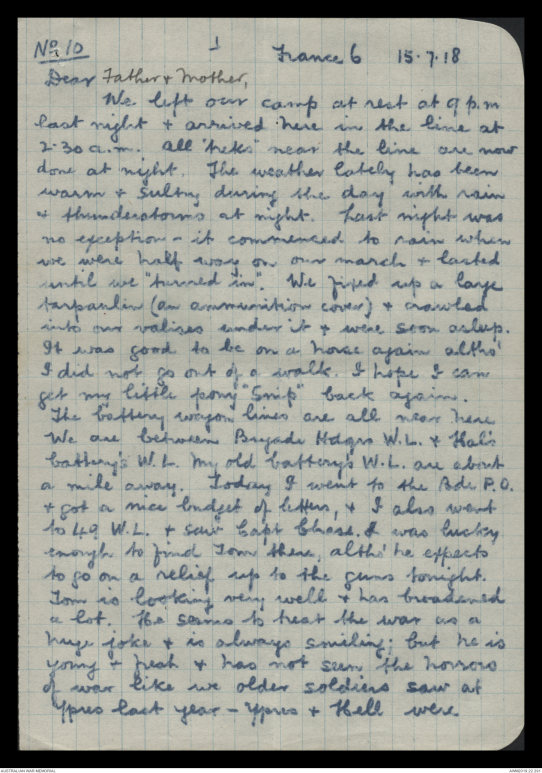 No 10 1 France 6 15.7.18
Dear Father & Mother,
We left our camp at rest at 9 p.m
last night & arrived here in the line at
2.30 a.m. All "treks" near the line are now
done at night. The weather lately has been
warm & sultry during the day with rain
& thunderstorms at night. Last night was
no exception - it commenced to rain when
we were half way on our march & lasted
until we "turned in". We fixed up a large
tarpaulin (an ammunition cover) & crawled
into our valises under it & were soon asleep.
It was good to be on a horse again altho'
I did not go out of a walk. I hope I can
get my little pony "Snip" back again.
The battery wagon lines are all near here
We are between Brigade Hdqrs W.L. & Hal's
battery's W.L. My old battery's W.L. are about
a mile away. Today I went to the Bde P.O.
& got a nice budget of letters, & I also went
to 49 W.L. & saw Capt Chase. I was lucky
enough to find Tom there, altho' he expects
to go on a relief up to the guns tonight.
Tom is looking very well & has broadened
a lot. He seems to treat the war as a
huge joke & is always smiling; but he is
young & fresh & has not seen the horrors
of war like we older soldiers saw at
Ypres last year - Ypres & Hell were
AUSTRALIAN WAR MEMORIAL